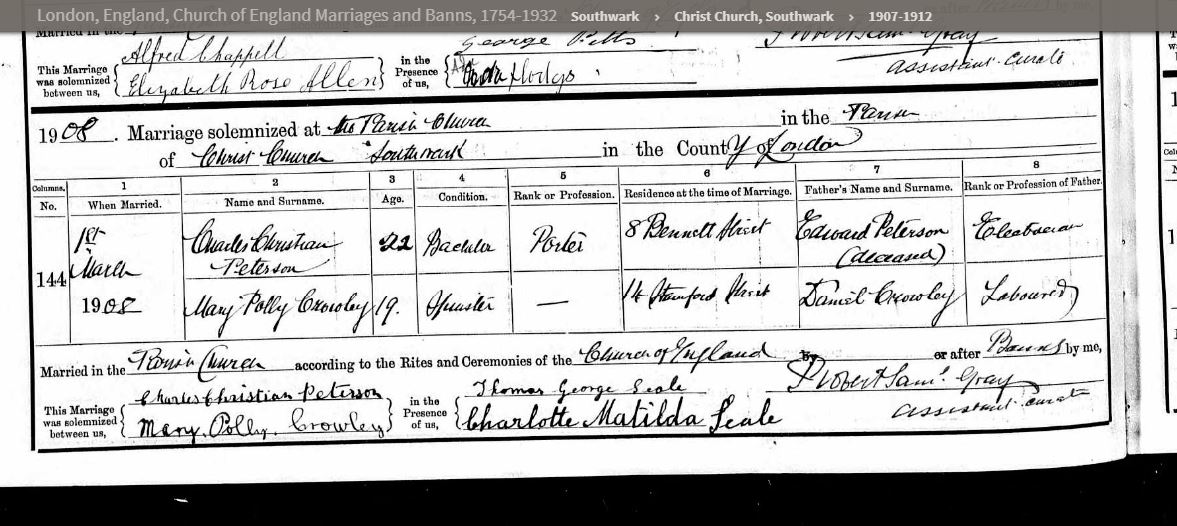 London, England, Church of England Marriages and Banns, 1754-1932 Southwark › Christ Church, Southwark › 1907-1912
Married in the
Alfred Chappell George Pitts
This Marriage was solemnized between us, in the Presence of us, Assistant Curate
Elizabeth Rose Allen Hodges
1908. Marriage solemnized at the Parish Church in the Parish
of Christ Church Southwark in the County of London
Columns. 1 2 3 4 5 6 7 8
No. When Married. Name and Surname. Age. Condition. Rank or Profession. Residence at the time of Marriage. Father's Name and Surname. Rank or Profession of Father.
144 1st March 1908
Charles Christian Peterson 22 Bachelor Porter 8 Bennett Street Edward Peterson (deceased)
Mary Polly Crowley 19. Spinster — 14 Stamford Street Daniel Crowley Labourer
Married in the Parish Church according to the Rites and Ceremonies of the Church of England by or after Banns by me,
Charles Christian Peterson Thomas George Seale Robert Saml. Gray
This Marriage was solemnized between us, in the Presence of us, Assistant Curate
Mary Polly Crowley Charlotte Matilda Seale